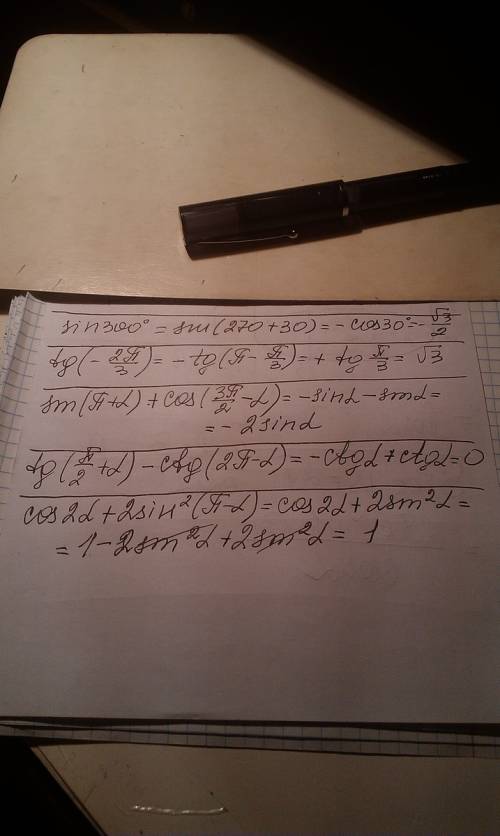 sin300° = sin(270+30) = -cos30° = -√3/2
tg(-2π/3) = -tg(π-π/3) = + tg π/3 = √3
sin(π+α) + cos(3π/2-α) = -sinα - sinα =
= -2sinα
tg(π/2+α) - ctg(2π-α) = -ctgα + ctgα = 0
cos2α + 2sin²(π-α) = cos2α + 2sin²α =
= 1 - 2sin²α + 2sin²α = 1